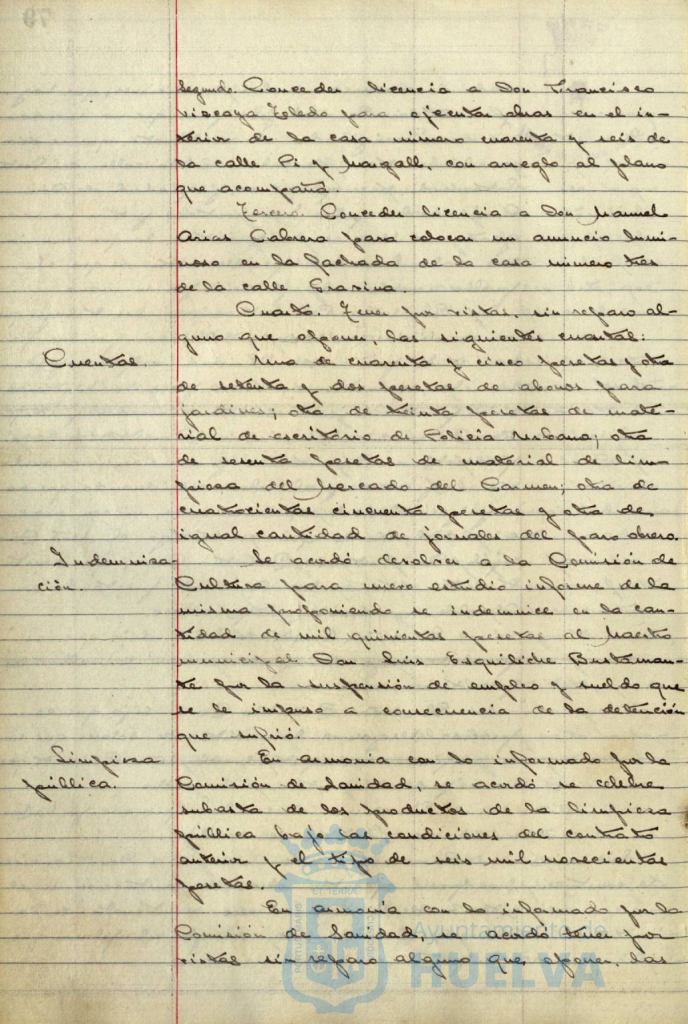 Segundo. Conceder licencia a Don Francisco
Vizcaya Toledo para ejecutar obras en el in-
terior de la casa número cuarenta y seis de
la calle Pi y Margall, con arreglo al plano
que acompaña.
Tercero. Conceder licencia a Don Manuel
Arias Cabrera para colocar un anuncio lumi-
noso en la fachada de la casa número tres
de la calle Gravina.
Cuarto. Tener por vistas, sin reparo al-
guno que oponer, las siguientes cuentas:
Cuentas. Una de cuarenta y cinco pesetas y otra
de setenta y dos pesetas de abonos para
jardines; otra de treinta pesetas de mate-
rial de escritorio de Policía Urbana; otra
de sesenta pesetas de material de lim-
pieza del Mercado del Carmen; otra de
cuatrocientas cincuenta pesetas y otra de
igual cantidad de jornales del paro obrero.
Indemniza- Se acordó devolver a la Comisión de
ción. Cultura para nuevo estudio informe de la
misma proponiendo se indemnice en la can-
tidad de mil quinientas pesetas al Maestro
municipal Don Luis Esquiliche Bustaman-
te por la suspensión de empleo y sueldo que
se le impuso a consecuencia de la detención
que sufrió.
Limpieza En armonía con lo informado por la
pública. Comisión de Sanidad, se acordó se celebre
subasta de los productos de la limpieza
pública bajo las condiciones del contrato
anterior y el tipo de seis mil novecientas
pesetas.
En armonía con lo informado por la
Comisión de Sanidad, se acordó tener por
vistas sin reparo alguno que oponer, las
Ayuntamiento de
HUELVA